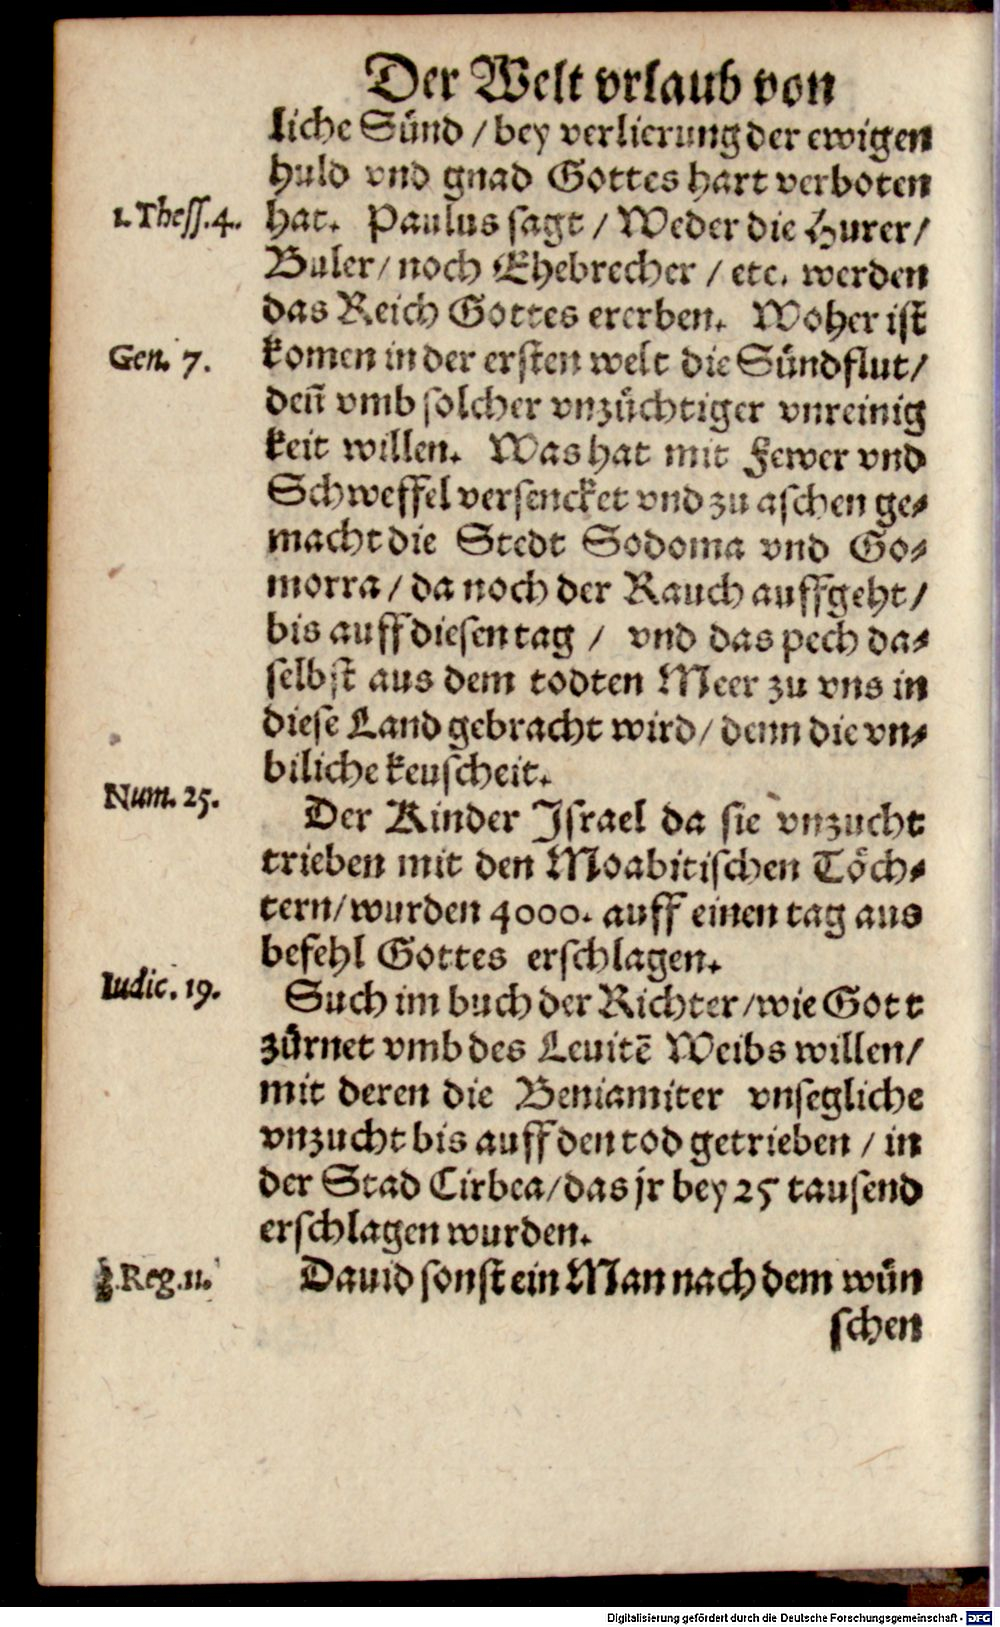 Der Welt vrlaub von
liche Sünd / bey verlierung der ewigen
huld vnd gnad Gottes hart verboten
1. Thess. 4.
hat. Paulus sagt / Weder die Hurer /
Buler / noch Ehebrecher / etc. werden
das Reich Gottes ererben. Woher ist
Gen. 7.
komen in der ersten welt die Sündflut /
deñ vmb solcher vnzüchtiger vnreinig
keit willen. Was hat mit Fewer vnd
Schweffel versencket vnd zu aschen ge⸗
macht die Stedt Sodoma vnd Go⸗
morra / da noch der Rauch auffgeht /
bis auff diesen tag / vnd das pech da⸗
selbst aus dem todten Meer zu vns in
diese Land gebracht wird / denn die vn⸗
biliche keuscheit.
Num. 25.
Der Kinder Israel da sie vnzucht
trieben mit den Moabitischen Töch⸗
tern / wurden 4000. auff einen tag aus
befehl Gottes erschlagen.
Iudic. 19.
Such im buch der Richter / wie Gott
zürnet vmb des Leuitē Weibs willen /
mit deren die Beniamiter vnsegliche
vnzucht bis auff den tod getrieben / in
der Stad Cirbea / das jr bey 25 tausend
erschlagen wurden.
2. Reg. 11.
Dauid sonst ein Man nach dem wün
schen
Digitalisierung gefördert durch die Deutsche Forschungsgemeinschaft - DFG